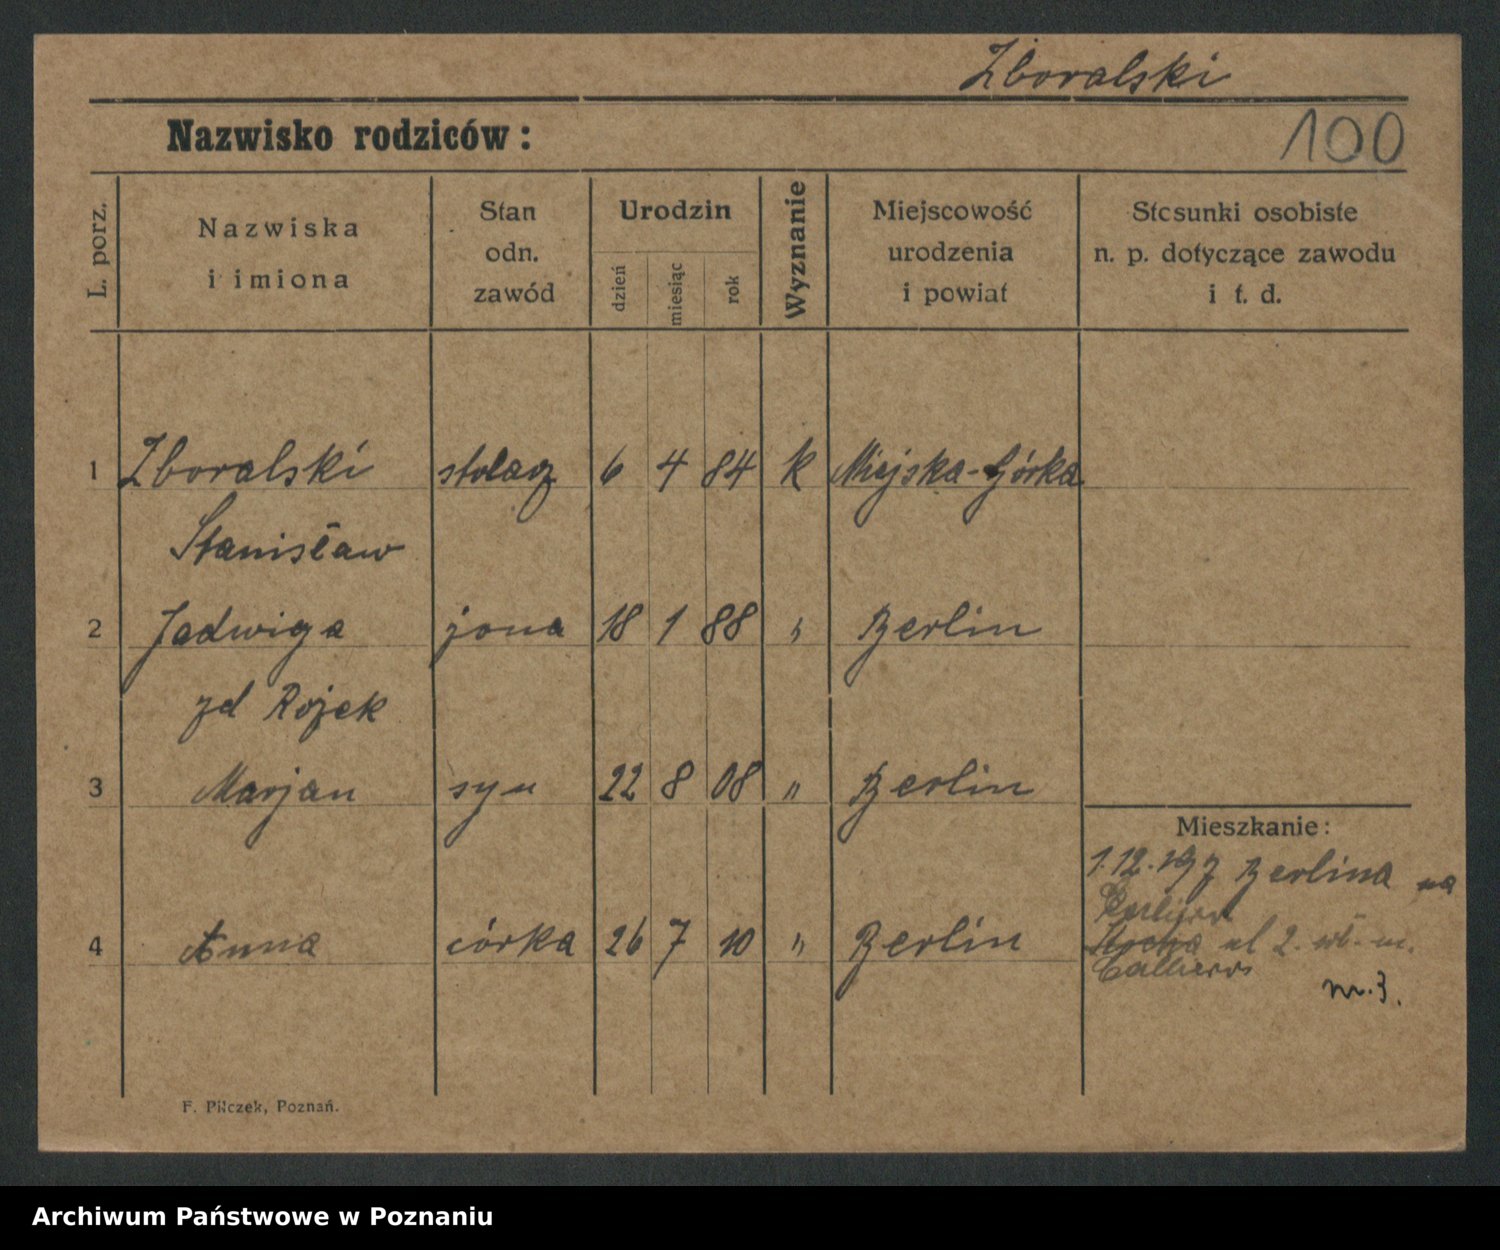 Zboralski
Nazwisko rodziców:
100
L. porz.
Nazwiska
i imiona
Stan
odn.
zawód
Urodzin
dzień
miesiąc
rok
Wyznanie
Miejscowość
urodzenia
i powiat
Stosunki osobiste
n. p. dotyczące zawodu
i t. d.
1 Zboralski stolarz 6 4 84 k Miejska-Górka
Stanisław
2 Jadwiga żona 18 1 88 " Berlin
zd Rojek
3 Marjan syn 22 8 08 " Berlin
Mieszkanie:
1.12.19 z Berlina na
4 Anna córka 26 7 10 " Berlin
ul 2. m.
nr. 3.
F. Pilczek, Poznań.
Archiwum Państwowe w Poznaniu